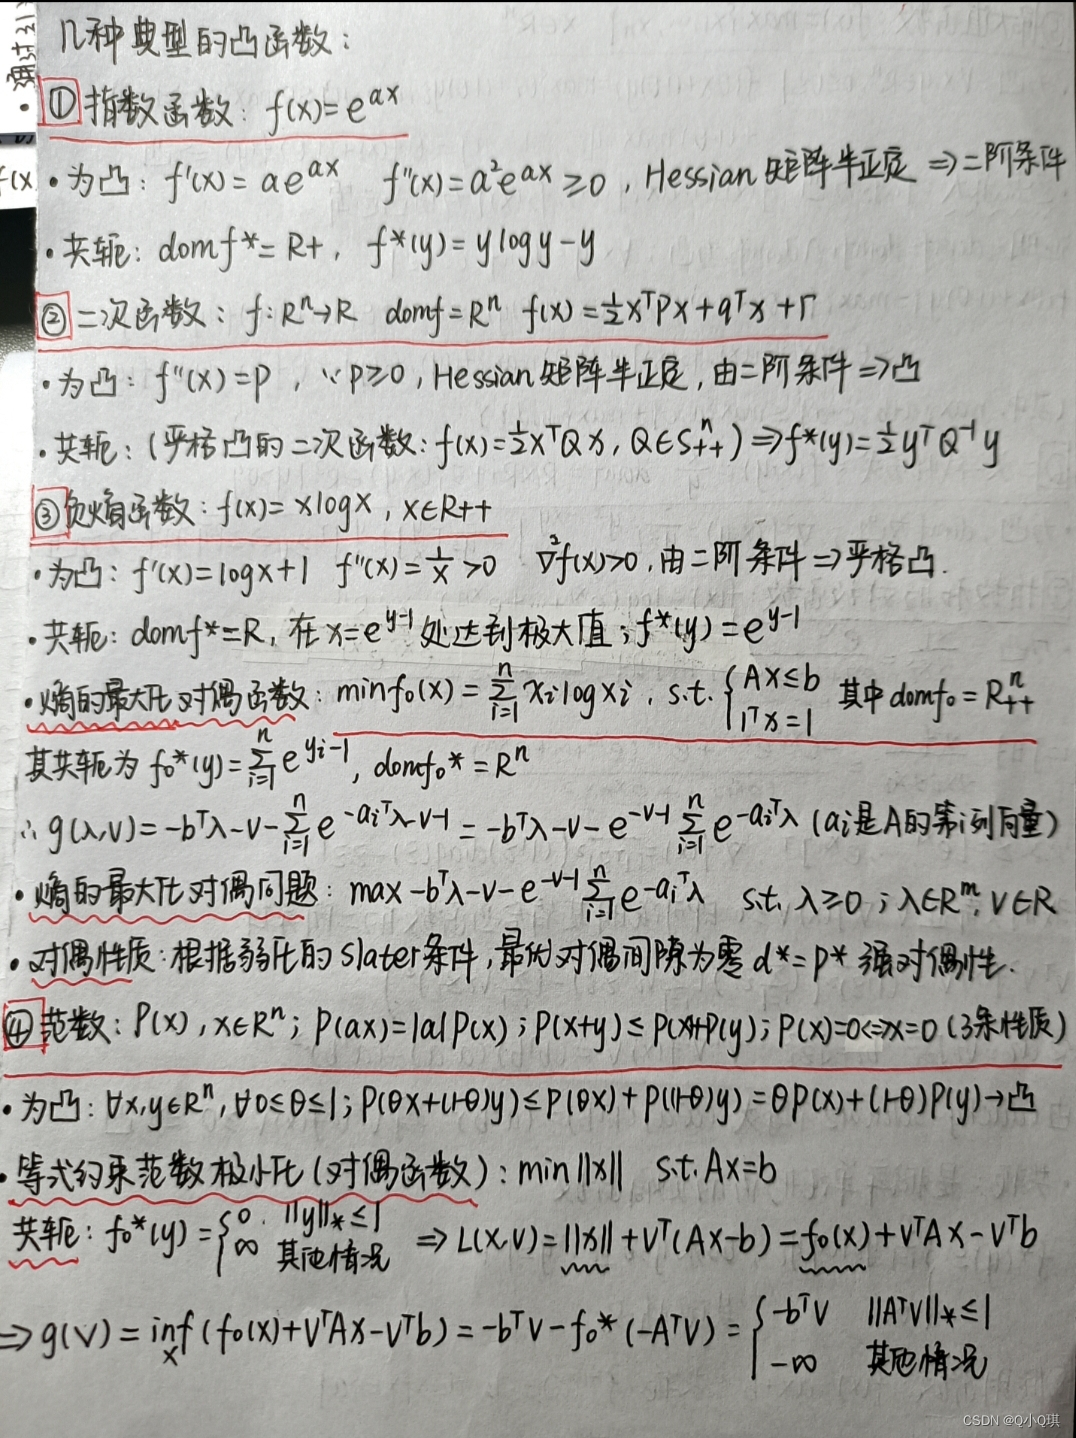 几种典型的凸函数：
① 指数函数：f(x)=e^{ax}
f(x
·为凸：f'(x)=ae^{ax} f''(x)=a²e^{ax}≥0，Hessian矩阵半正定 ⇒二阶条件
·共轭：domf*=R+，f*(y)=ylogy-y
② 二次函数：f:Rⁿ→R domf=Rⁿ f(x)=½xᵀPx+qᵀx+r
·为凸：f''(x)=P，∵P≥0，Hessian矩阵半正定，由二阶条件⇒凸
·共轭：(严格凸的二次函数：f(x)=½xᵀQx，Q∈Sⁿ₊₊)⇒f*(y)=½yᵀQ⁻¹y
③负熵函数：f(x)=xlogx，x∈R++
·为凸：f'(x)=logx+1 f''(x)=1/x>0 ∇²f(x)>0，由二阶条件⇒严格凸.
·共轭：domf*=R，在x=e^{y-1}处达到极大值；f*(y)=e^{y-1}
·熵的最大化对偶函数：minf₀(x)=∑_{i=1}^{n}xᵢlogxᵢ，s.t.{Ax≤b 1ᵀx=1 其中domf₀=Rⁿ₊₊
其共轭为f₀*(y)=∑_{i=1}^{n}e^{yᵢ-1}，domf₀*=Rⁿ
∴g(λ,v)=-bᵀλ-v-∑_{i=1}^{n}e^{-aᵢᵀλ-v-1}=-bᵀλ-v-e^{-v-1}∑_{i=1}^{n}e^{-aᵢᵀλ}(aᵢ是A的第i列向量)
·熵的最大化对偶问题：max-bᵀλ-v-e^{-v-1}∑_{i=1}^{n}e^{-aᵢᵀλ} s.t. λ≥0；λ∈Rᵐ，v∈R
·对偶性质：根据弱化的Slater条件，最优对偶间隙为零 d*=p* 强对偶性.
④范数：P(x)，x∈Rⁿ；P(ax)=|a|P(x)；P(x+y)≤P(x)+P(y)；P(x)=0⇔x=0(3条性质)
·为凸：∀x,y∈Rⁿ，∀0≤θ≤1；P(θx+(1-θ)y)≤P(θx)+P((1-θ)y)=θP(x)+(1-θ)P(y)→凸
·等式约束范数极小化(对偶函数)：min||x|| s.t.Ax=b
共轭：f₀*(y)={0. ||y||*≤1 ∞ 其他情况 ⇒L(x,v)=||x||+vᵀ(Ax-b)=f₀(x)+vᵀAx-vᵀb
⇒g(v)=inf_x(f₀(x)+vᵀAx-vᵀb)=-bᵀv-f₀*(-Aᵀv)={-bᵀv ||Aᵀv||*≤1 -∞ 其他情况
CSDN @Q小Q琪